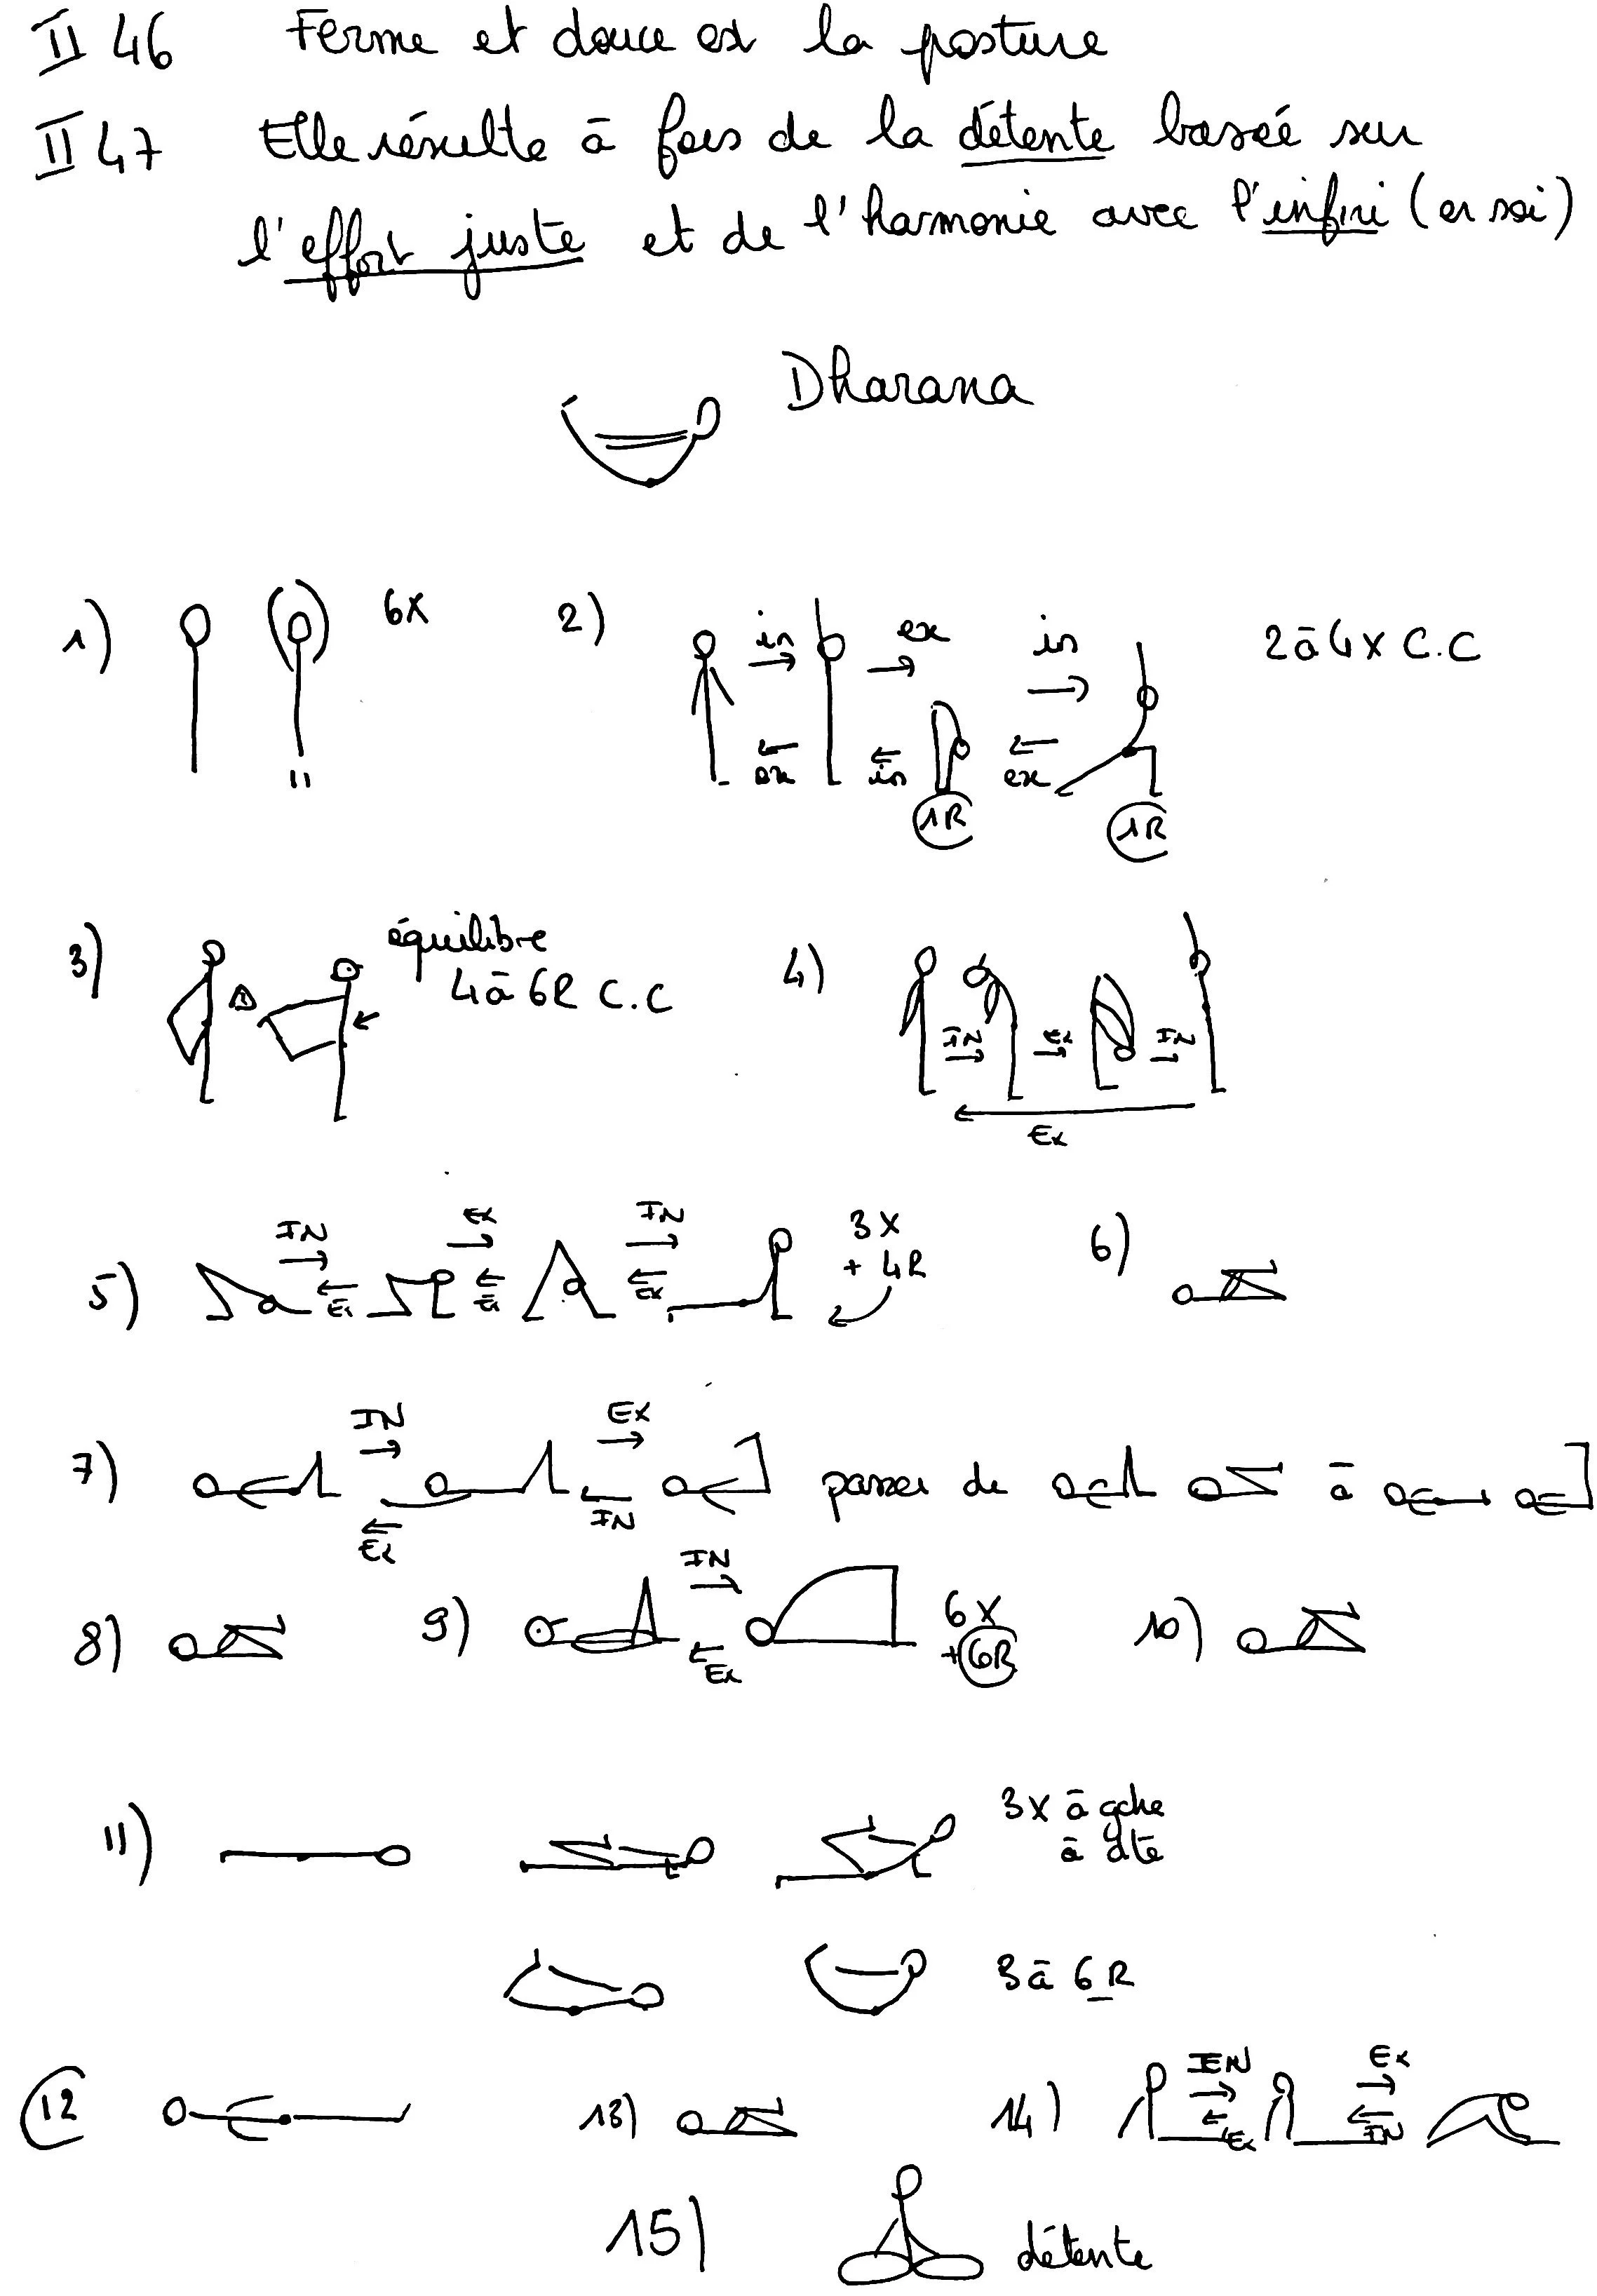 II 46 Ferme et douce est la posture
II 47 Elle résulte à fois de la détente basée sur
l'effort juste et de l'harmonie avec l'infini (en soi)
Dharana
1) 6x
2) in ex in 2 à 4x C.C
ex in ex
1R 1R
3) équilibre
4 à 6R C.C
4) IN Ex IN
Ex
5) IN Ex IN 3x
+ 4R
Ex Ex Ex
6)
7) IN Ex passer de à
Ex IN
8)
9) IN 6x
+ 6R
Ex
10)
11) 3x à gche
à dte
3 à 6R
12
13)
14) IN Ex
Ex IN
15) détente